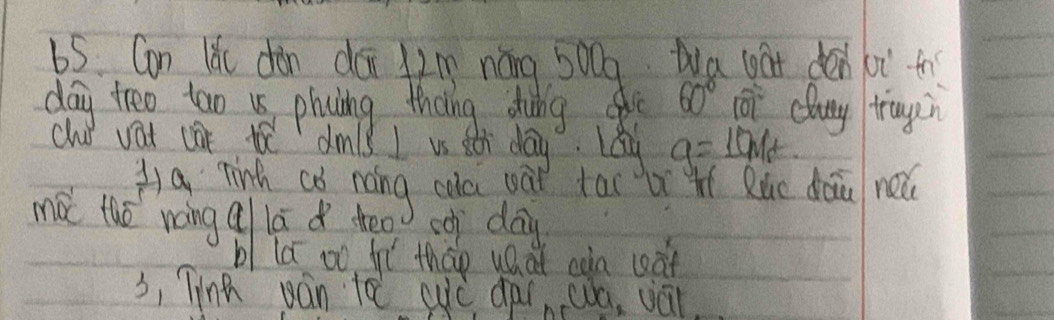 b5. Con lắc đơn dài 1,2m nặng 500g. Đưa vật đến vị trí
dây treo tạo vs phương thẳng đứng góc 60° rồi truyền
cho vật vận tốc 2m/s ⊥ vs sợi dây. Lấy g = 10m/s
a, Tính cơ năng của vật tại vị trí lúc đầu nếu
mốc thế năng a) là đ' treo sợi dây.
b) là vị trí thấp nhất của vật
3, Tính vận tốc cực đại của vật